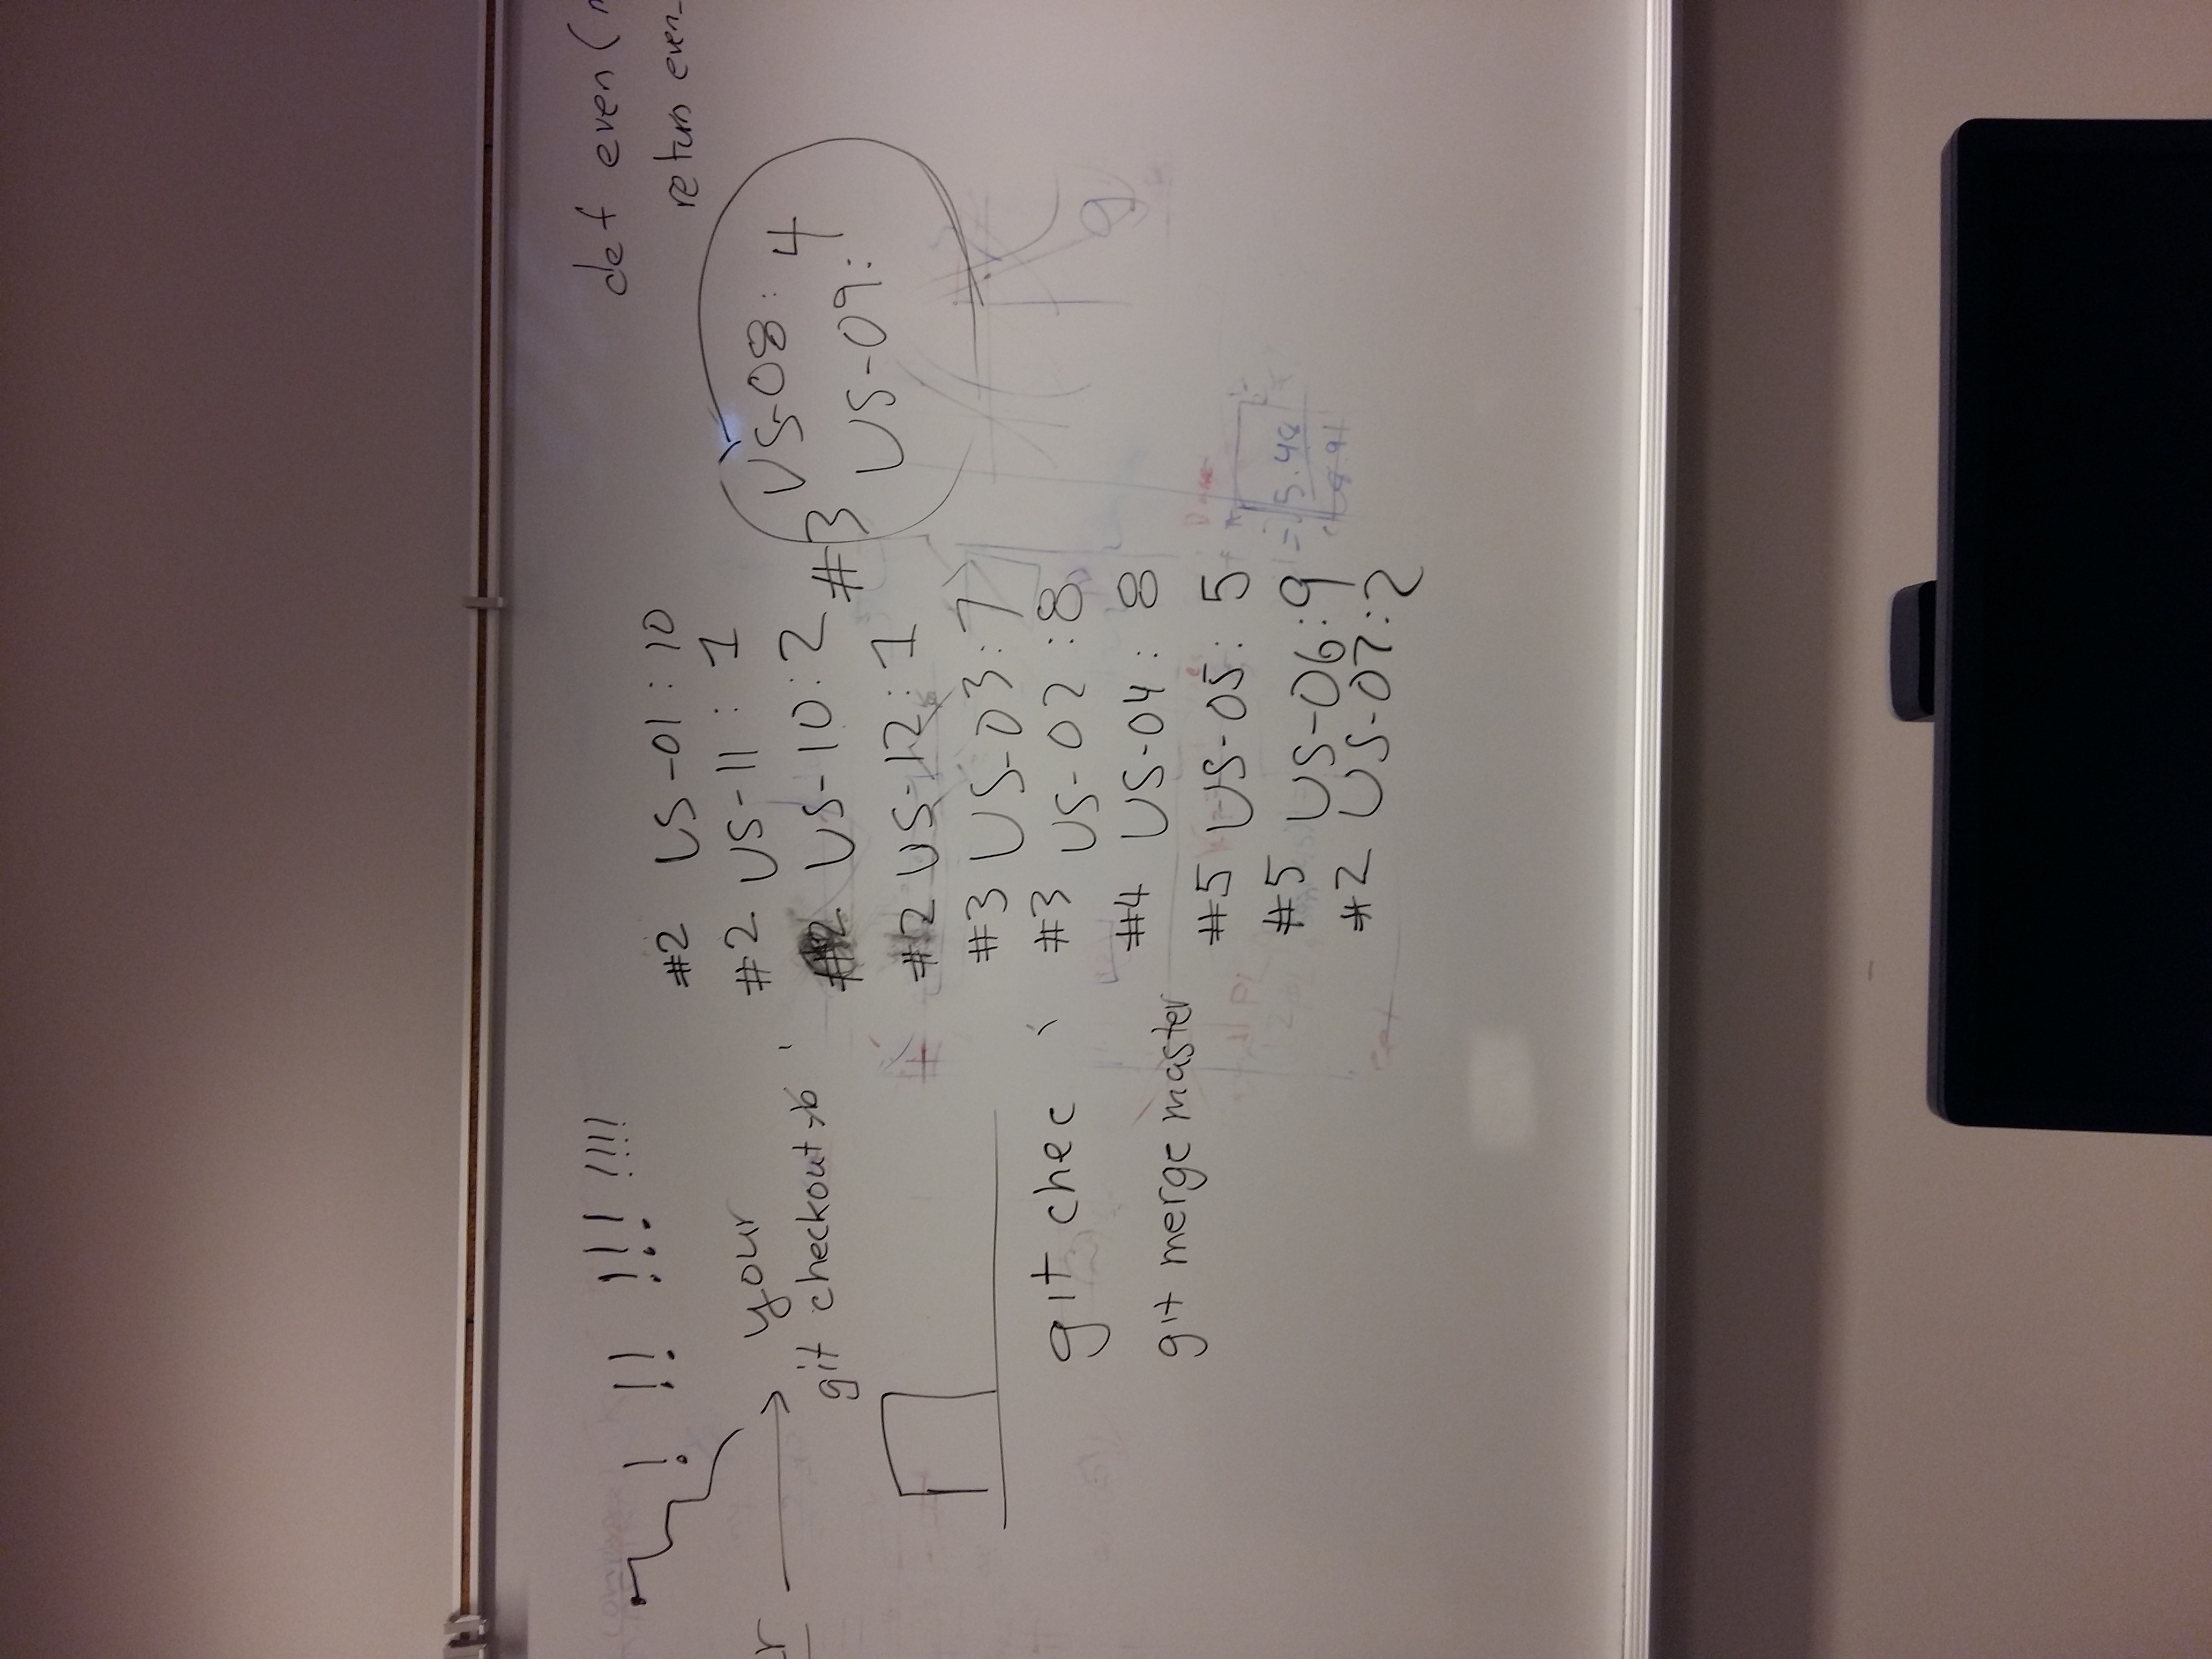 ! !! !!! !!!!
your
git checkout -b
git chec
git merge master
#2 US-01: 10
#2 US-11: 1
#2 US-10: 2
#2 US-12: 1
#3 US-03: 7
#3 US-02: 8
#4 US-04: 8
#5 US-05: 5
#5 US-06: 9
#2 US-07: 2
#3
US-08:
4
US-09:
def even(
return even_
9
= 5.48